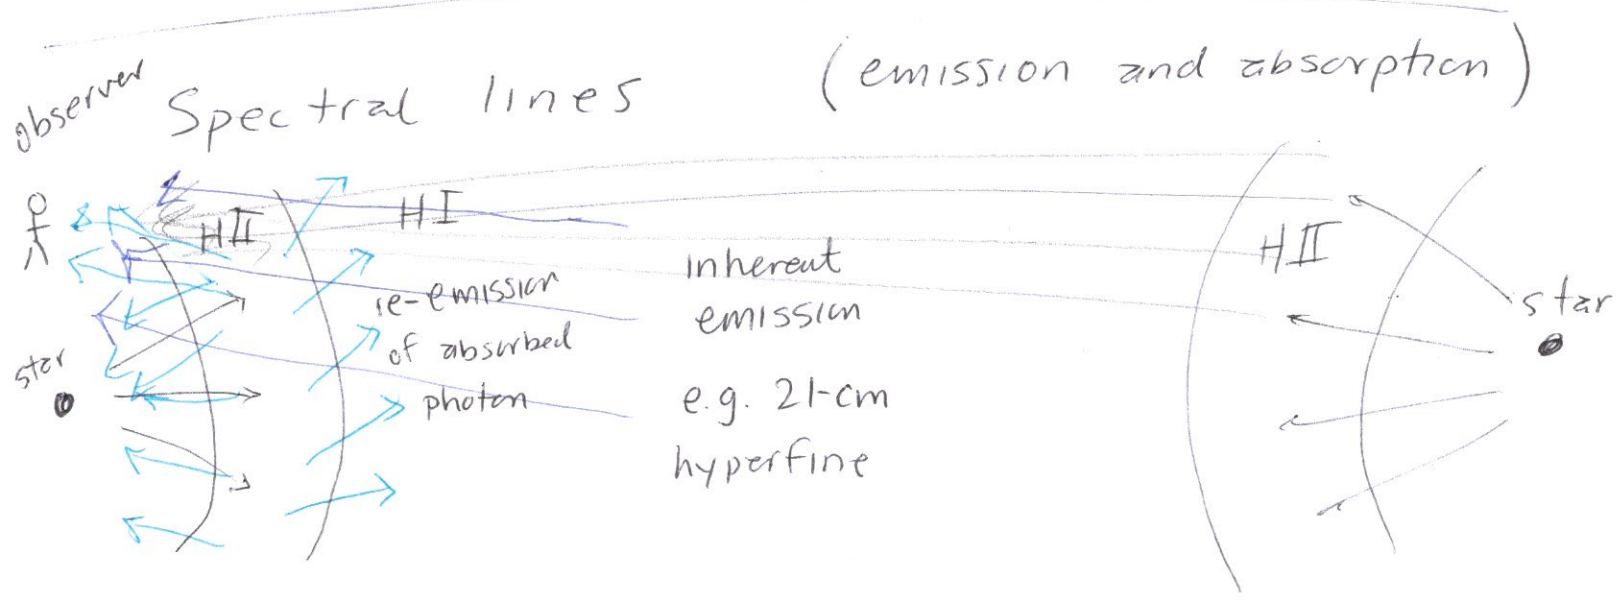 observer
Spectral lines
(emission and absorption)
HII
HI
HII
re-emission
of absorbed
photon
inherent
emission
e.g. 21-cm
hyperfine
star
star